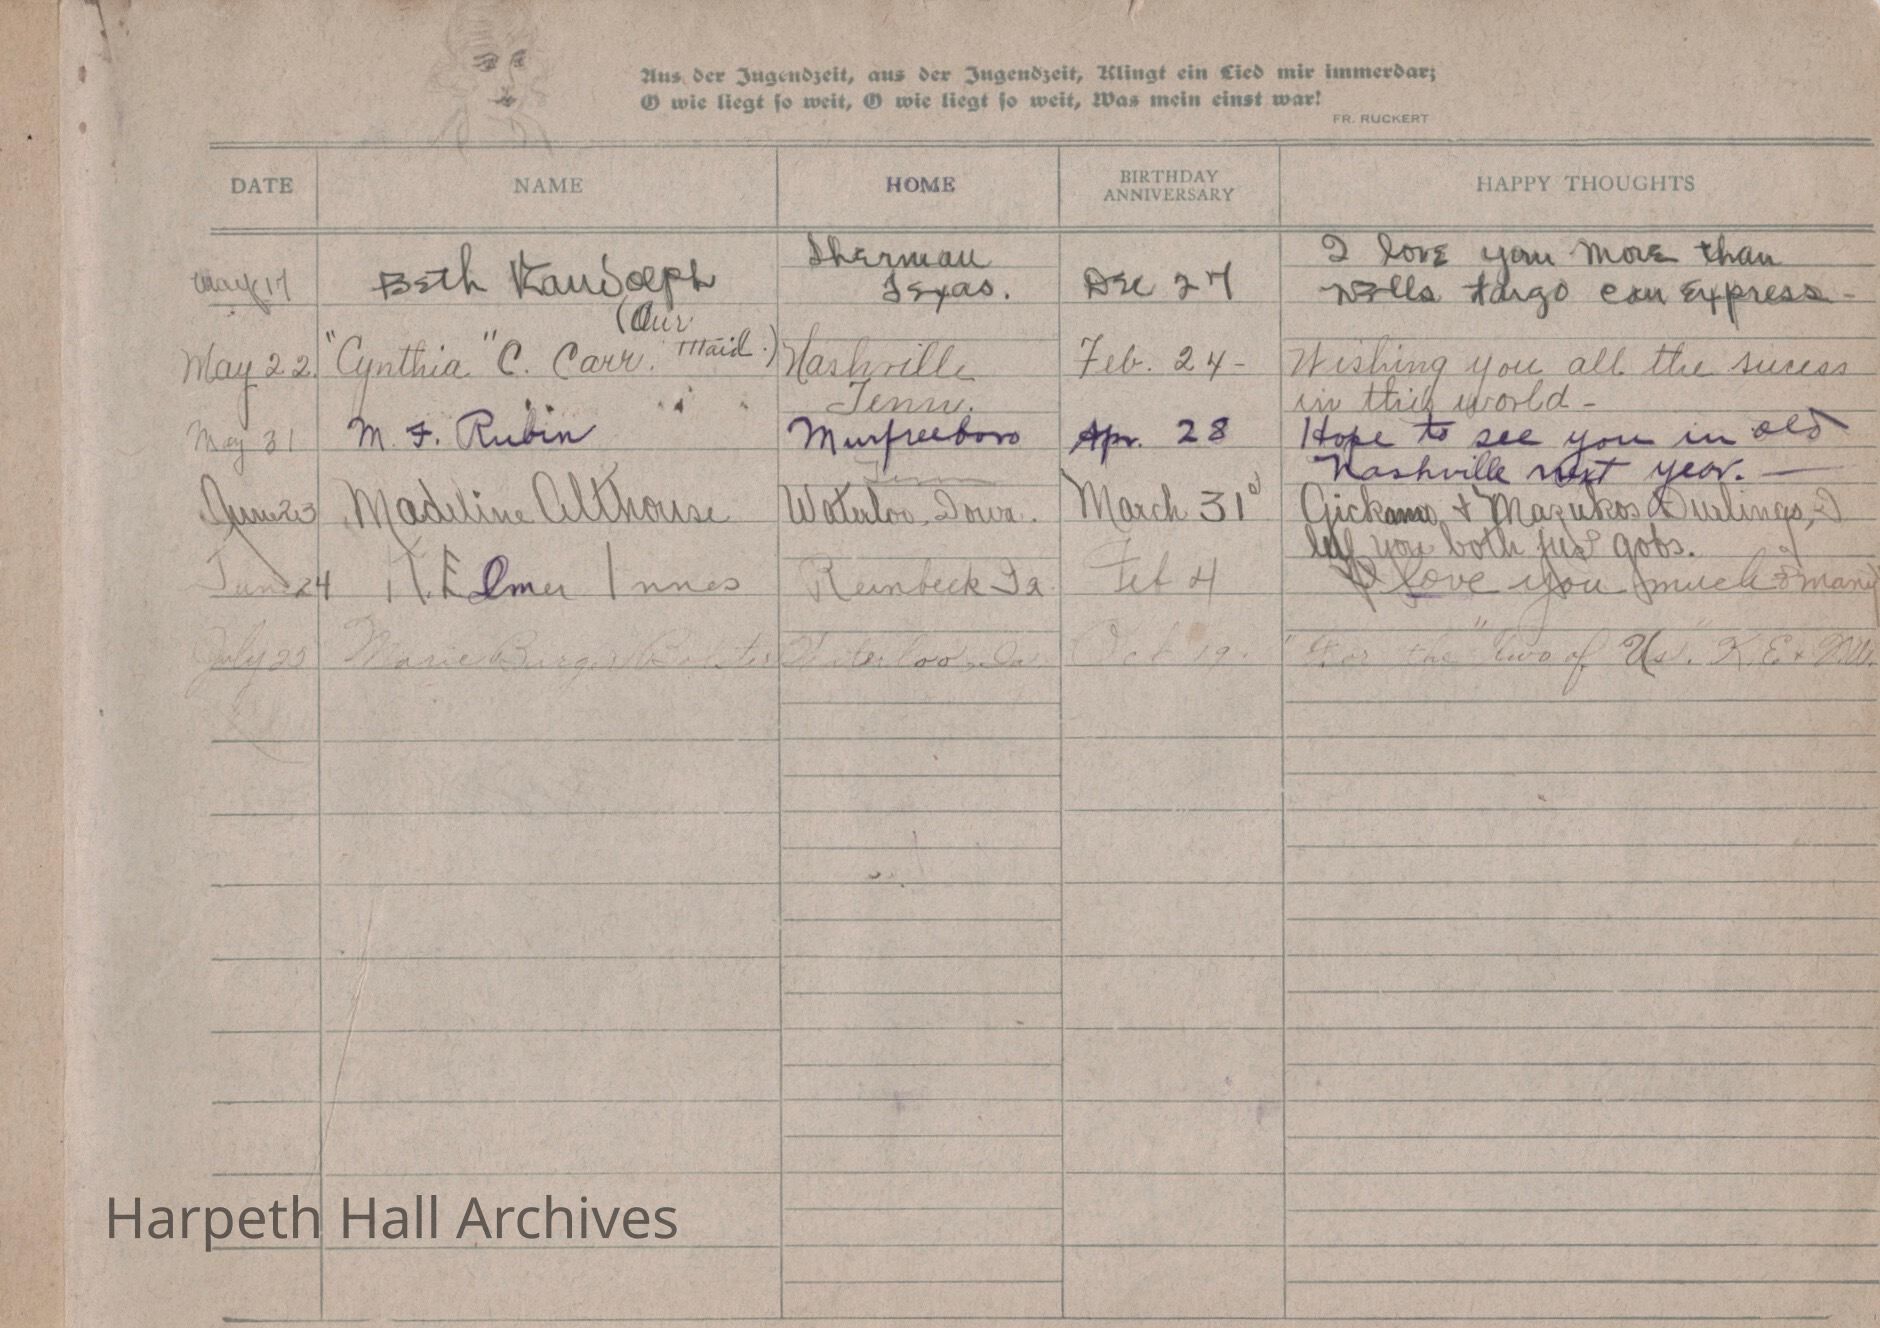 Aus der Jugendzeit, aus der Jugendzeit, Klingt ein Lied mir immerdar;
O wie liegt so weit, O wie liegt so weit, Was mein einst war!
FR. RUCKERT
DATE NAME HOME BIRTHDAY ANNIVERSARY HAPPY THOUGHTS
May 17 Beth Randolph Sherman Texas. Dec 27 I love you more than
Wells Fargo can Express -
May 22. "Cynthia" C. Carr. (Our Maid.) Nashville Tenn. Feb. 24- Wishing you all the sucess
in this world -
May 31 M. F. Rubin Murfreeboro Tenn Apr. 28 Hope to see you in old
Nashville next year. —
June 23 Madeline Althouse Waterloo, Iowa. March 31 & Darlings, I
you both jus' gobs.
June 24 K. Elmer Innes Reinbeck Ia. Feb 4 I love you much & many
July 23 Marie Burger Waterloo, Ia. Oct 19. "For the "two of Us". K. E. &
Harpeth Hall Archives